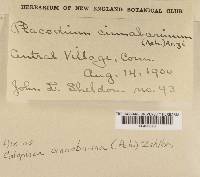 HERBARIUM OF NEW ENGLAND BOTANICAL CLUB
Placodium cinnabarinum
(Ach.) Anzi
Central Village, Conn.
Aug. 14, 1900
John L. Sheldon no. 43
Caloplaca cinnabarina (Ach.) Zahlbr.